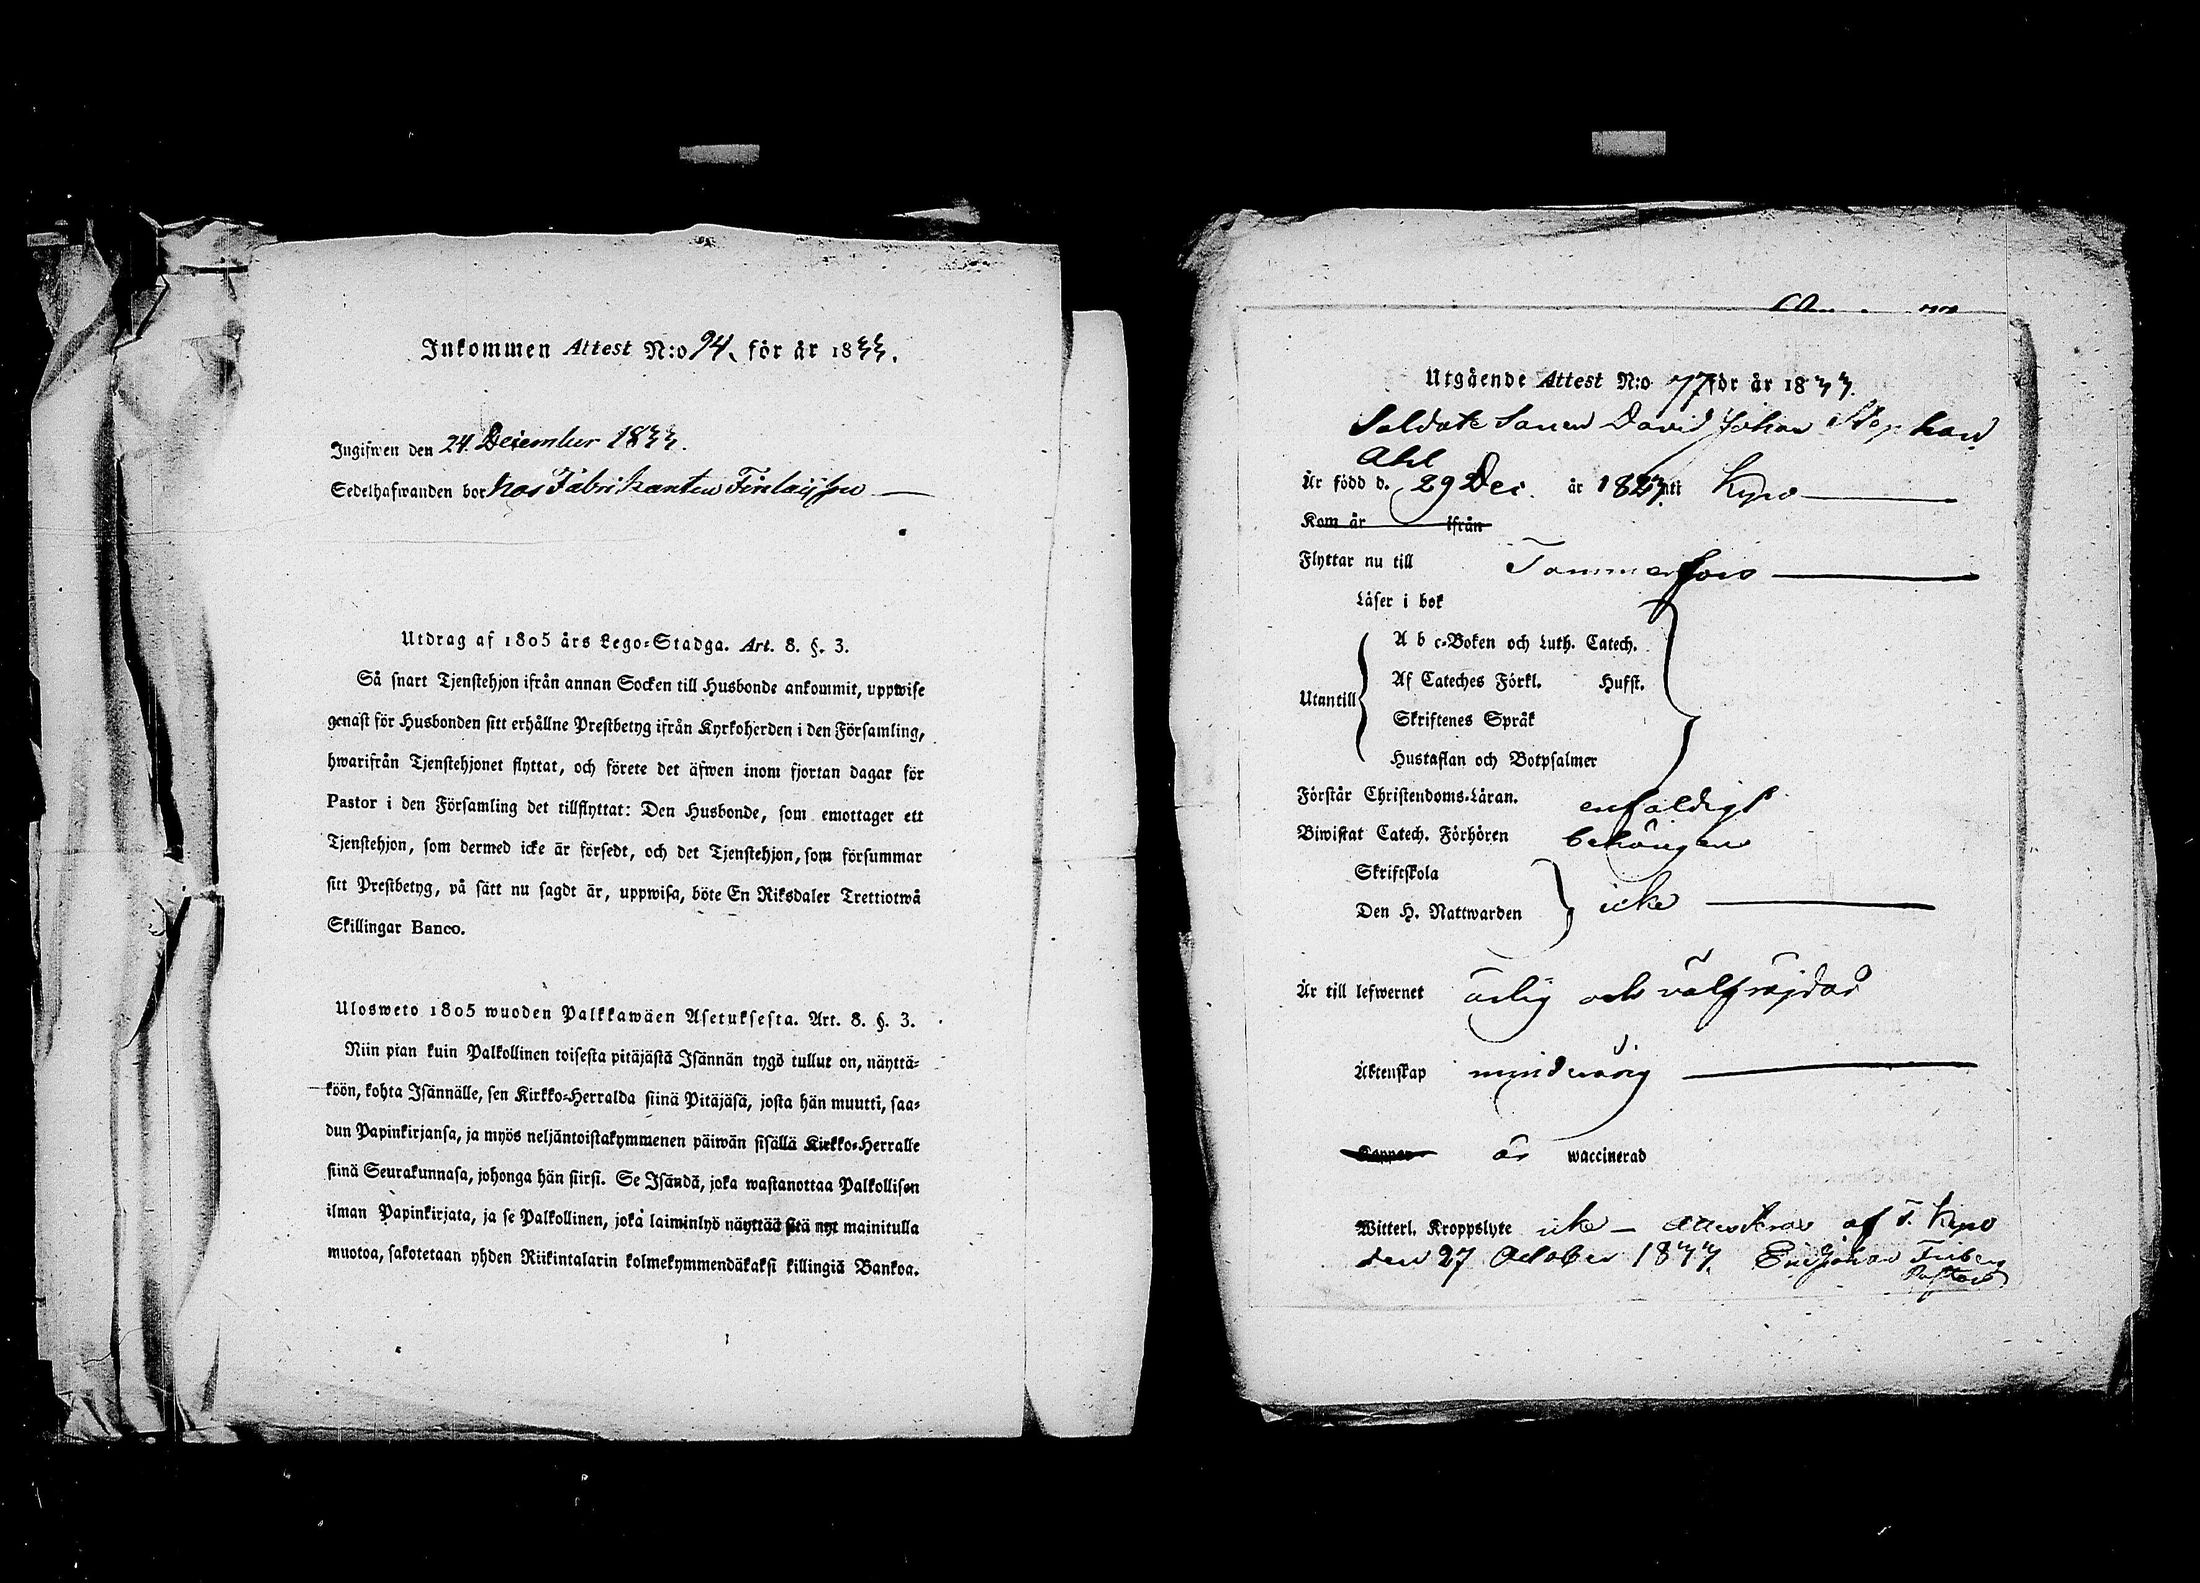 Inkommen Attest N:o 94. för år 1833.
Ingifwen den 24. December 1833.
Sedelhafwanden bor hos Fabrikanten Finlaijson
Utdrag af 1805 års Lego-Stadga. Art. 8. §. 3.
Så snart Tjenstehjon ifrån annan Socken till Husbonde ankommit, uppwise
genast för Husbonden sitt erhållne Prestbetyg ifrån Kyrkoherden i den Församling,
hwarifrån Tjenstehjonet flyttat, och förete det äfwen inom fjortan dagar för
Pastor i den Församling det tillflyttat: Den Husbonde, som emottager ett
Tjenstehjon, som dermed icke är försedt, och det Tjenstehjon, som försummar
sitt Prestbetyg, på sätt nu sagdt är, uppwisa, böte En Riksdaler Trettiotwå
Skillingar Banco.
Ulosweto 1805 wuoden Palkkawäen Asetuksesta. Art. 8. §. 3.
Niin pian kuin Palkollinen toisesta pitäjästä Isännän tygö tullut on, näyttä-
köön, kohta Isännälle, sen Kirkko-Herralda siinä Pitäjäsä, josta hän muutti, saa-
dun Papinkirjansa, ja myös neljäntoistakymmenen päiwän sisällä Kirkko-Herralle
siinä Seurakunnasa, johonga hän siirsi. Se Isändä, joka wastanottaa Palkollisen
ilman Papinkirjata, ja se Palkollinen, joka laiminlyö näyttää sitä nyt mainitulla
muotoa, sakotetaan yhden Riikintalarin kolmekymmendäkaksi killingiä Bankoa.
Utgående Attest N:o 77 för år 1833.
Soldats Sonen David Johan Stephan
Ahl
Är född d. 29 Dec. år 1827. uti Kyro
Kom år ifrån
Flyttar nu till Tammerfors
Läser i bok
A b c-Boken och Luth. Catech.
Af Cateches Förkl. Hufst.
Utantill
Skriftenes Språk
Hustaflan och Botpsalmer
Förstår Christendoms-Läran. enfaldigt
Biwistat Catech. Förhören behörigen
Skriftskola
Den H. Nattwarden icke
Är till lefwernet ärlig och välfräjdad
Äktenskap minderårig
Koppor är waccinerad
Witterl. Kroppslyte icke – Attesteras af T. Kyro
den 27 October 1833. Eric Johan Friberg
Pastor